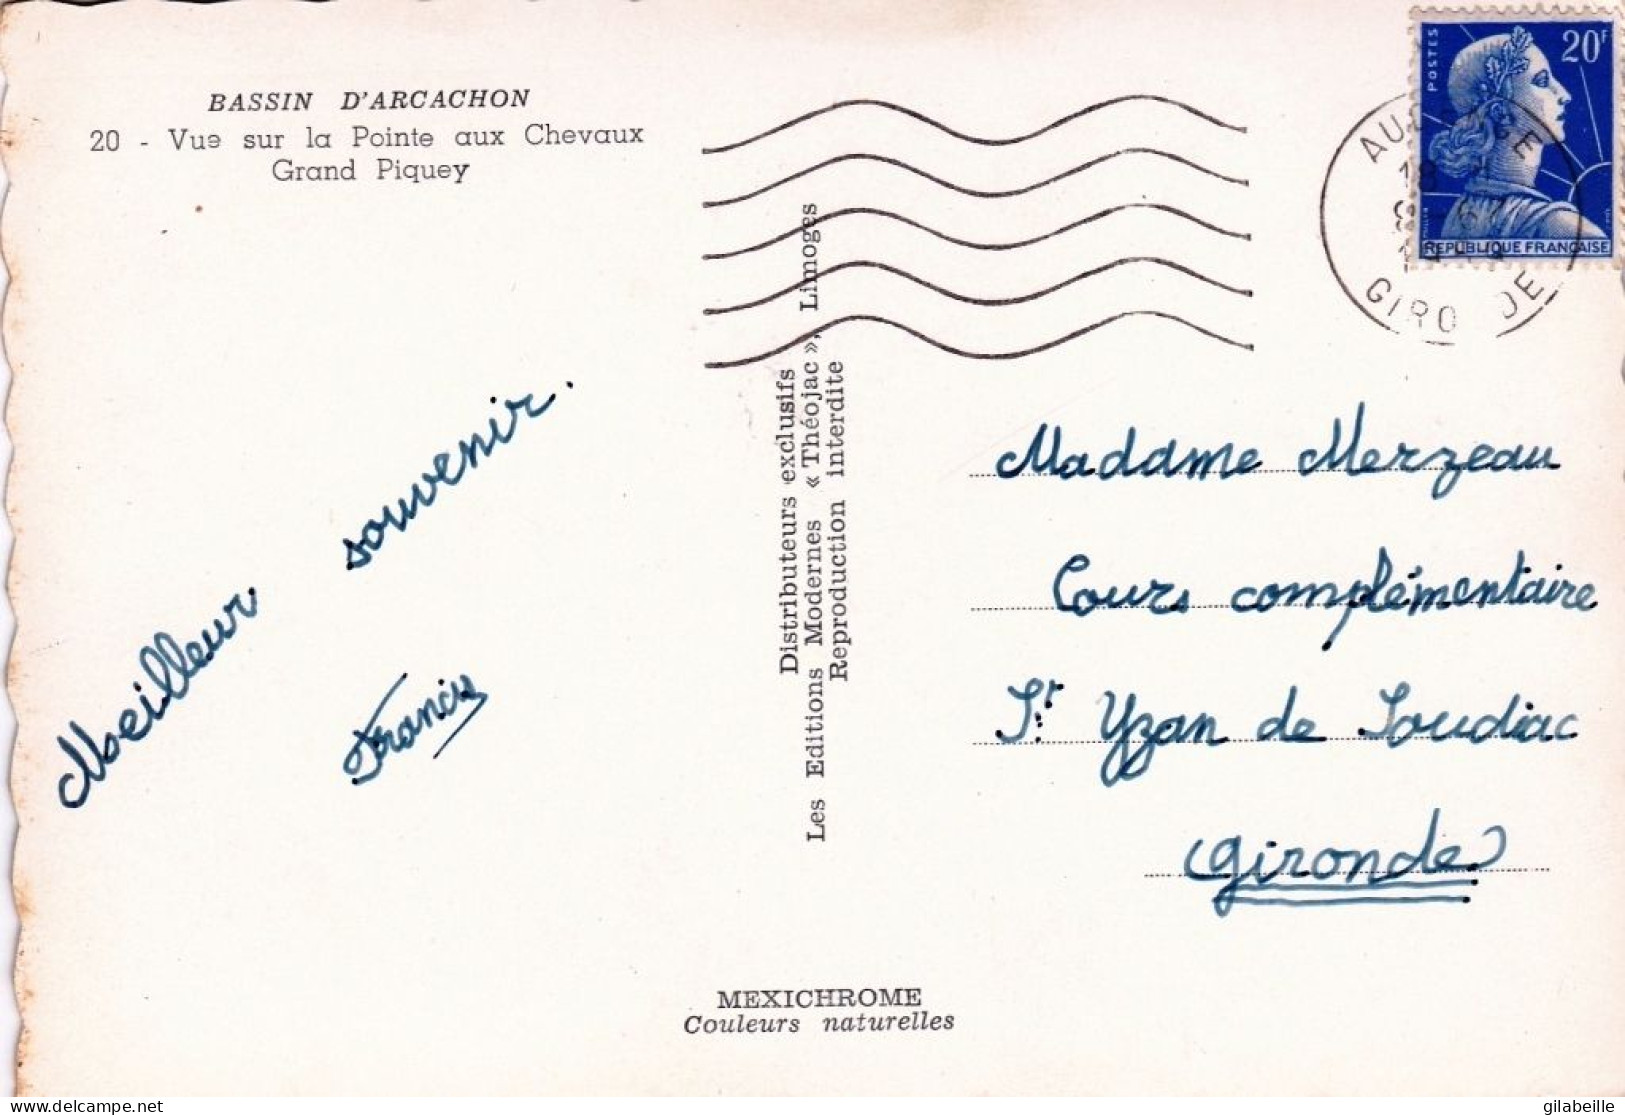 BASSIN D'ARCACHON
20 - Vue sur la Pointe aux Chevaux
Grand Piquey
Meilleur souvenir.
Francis
Distributeurs exclusifs
Les Editions Modernes « Théojac », Limoges
Reproduction interdite
MEXICHROME
Couleurs naturelles
POSTES
20F
REPUBLIQUE FRANÇAISE
GIRO DE
Madame Merzeau
Cours complémentaire
St Yzan de Soudiac
Gironde
gilabeille